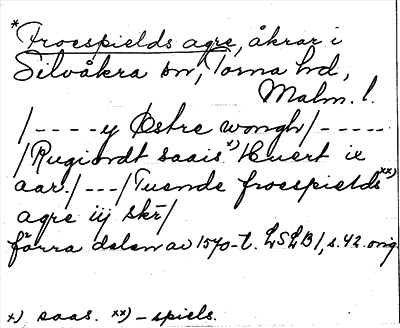 * Froespields agre, åkrar i
Silvåkra sn, Torna hd,
Malm. l.
/ - - - - y Østre wongh / - - - - -
/ Rugiordt saais x) Huert ix
aar. / - - - / Tuende froespields xx)
agre iij skr /
förra delen av 1570-t. LSLB 1, s. 42. orig.
x) saas. xx) - spiels.